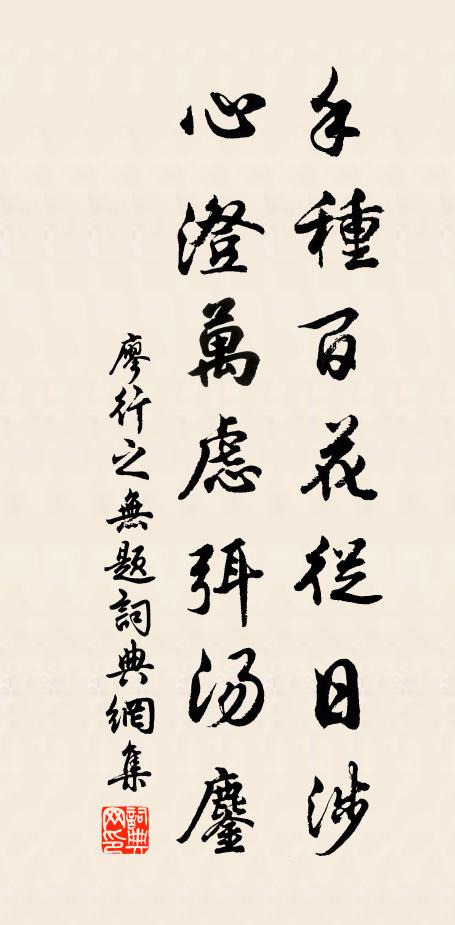 手種百花從日涉
心澄萬慮弭湯鏖
廖行之無題詞典網集
詞典网印